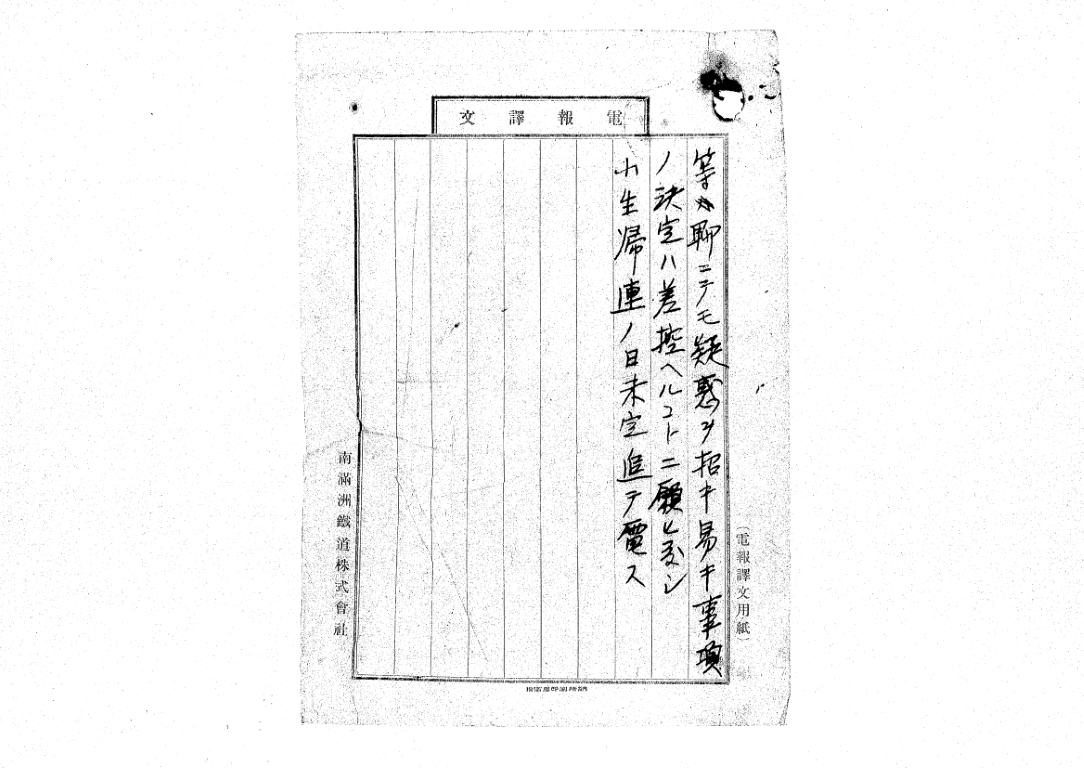 電報譯文
等聊ニテモ疑惑ヲ招キ易キ事項
ノ決定ハ差控ヘルコトニ願ヒ度シ
小生帰連ノ日未定追テ電ス
(電報譯文用紙)
南滿洲鐵道株式會社